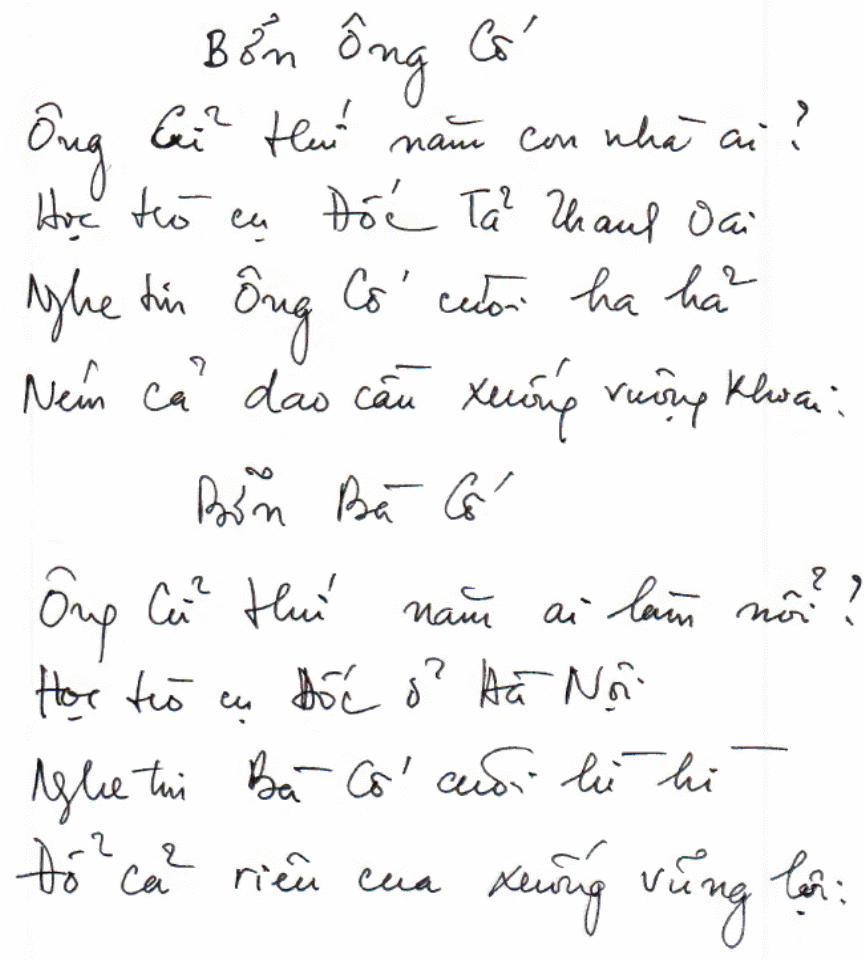 Bỡn Ông Cố
Ông Cử thứ năm con nhà ai?
Học trò cụ Đốc Tả Thanh Oai
Nghe tin Ông Cố cười ha hả
Ném cả dao cầu xuống ruộng khoai.
Bỡn Bà Cố
Ông Cử thứ năm ai làm nổi?
Học trò cụ Đốc ở Hà Nội
Nghe tin Bà Cố cười hì hì
Đổ cả riêu cua xuống vũng lội.